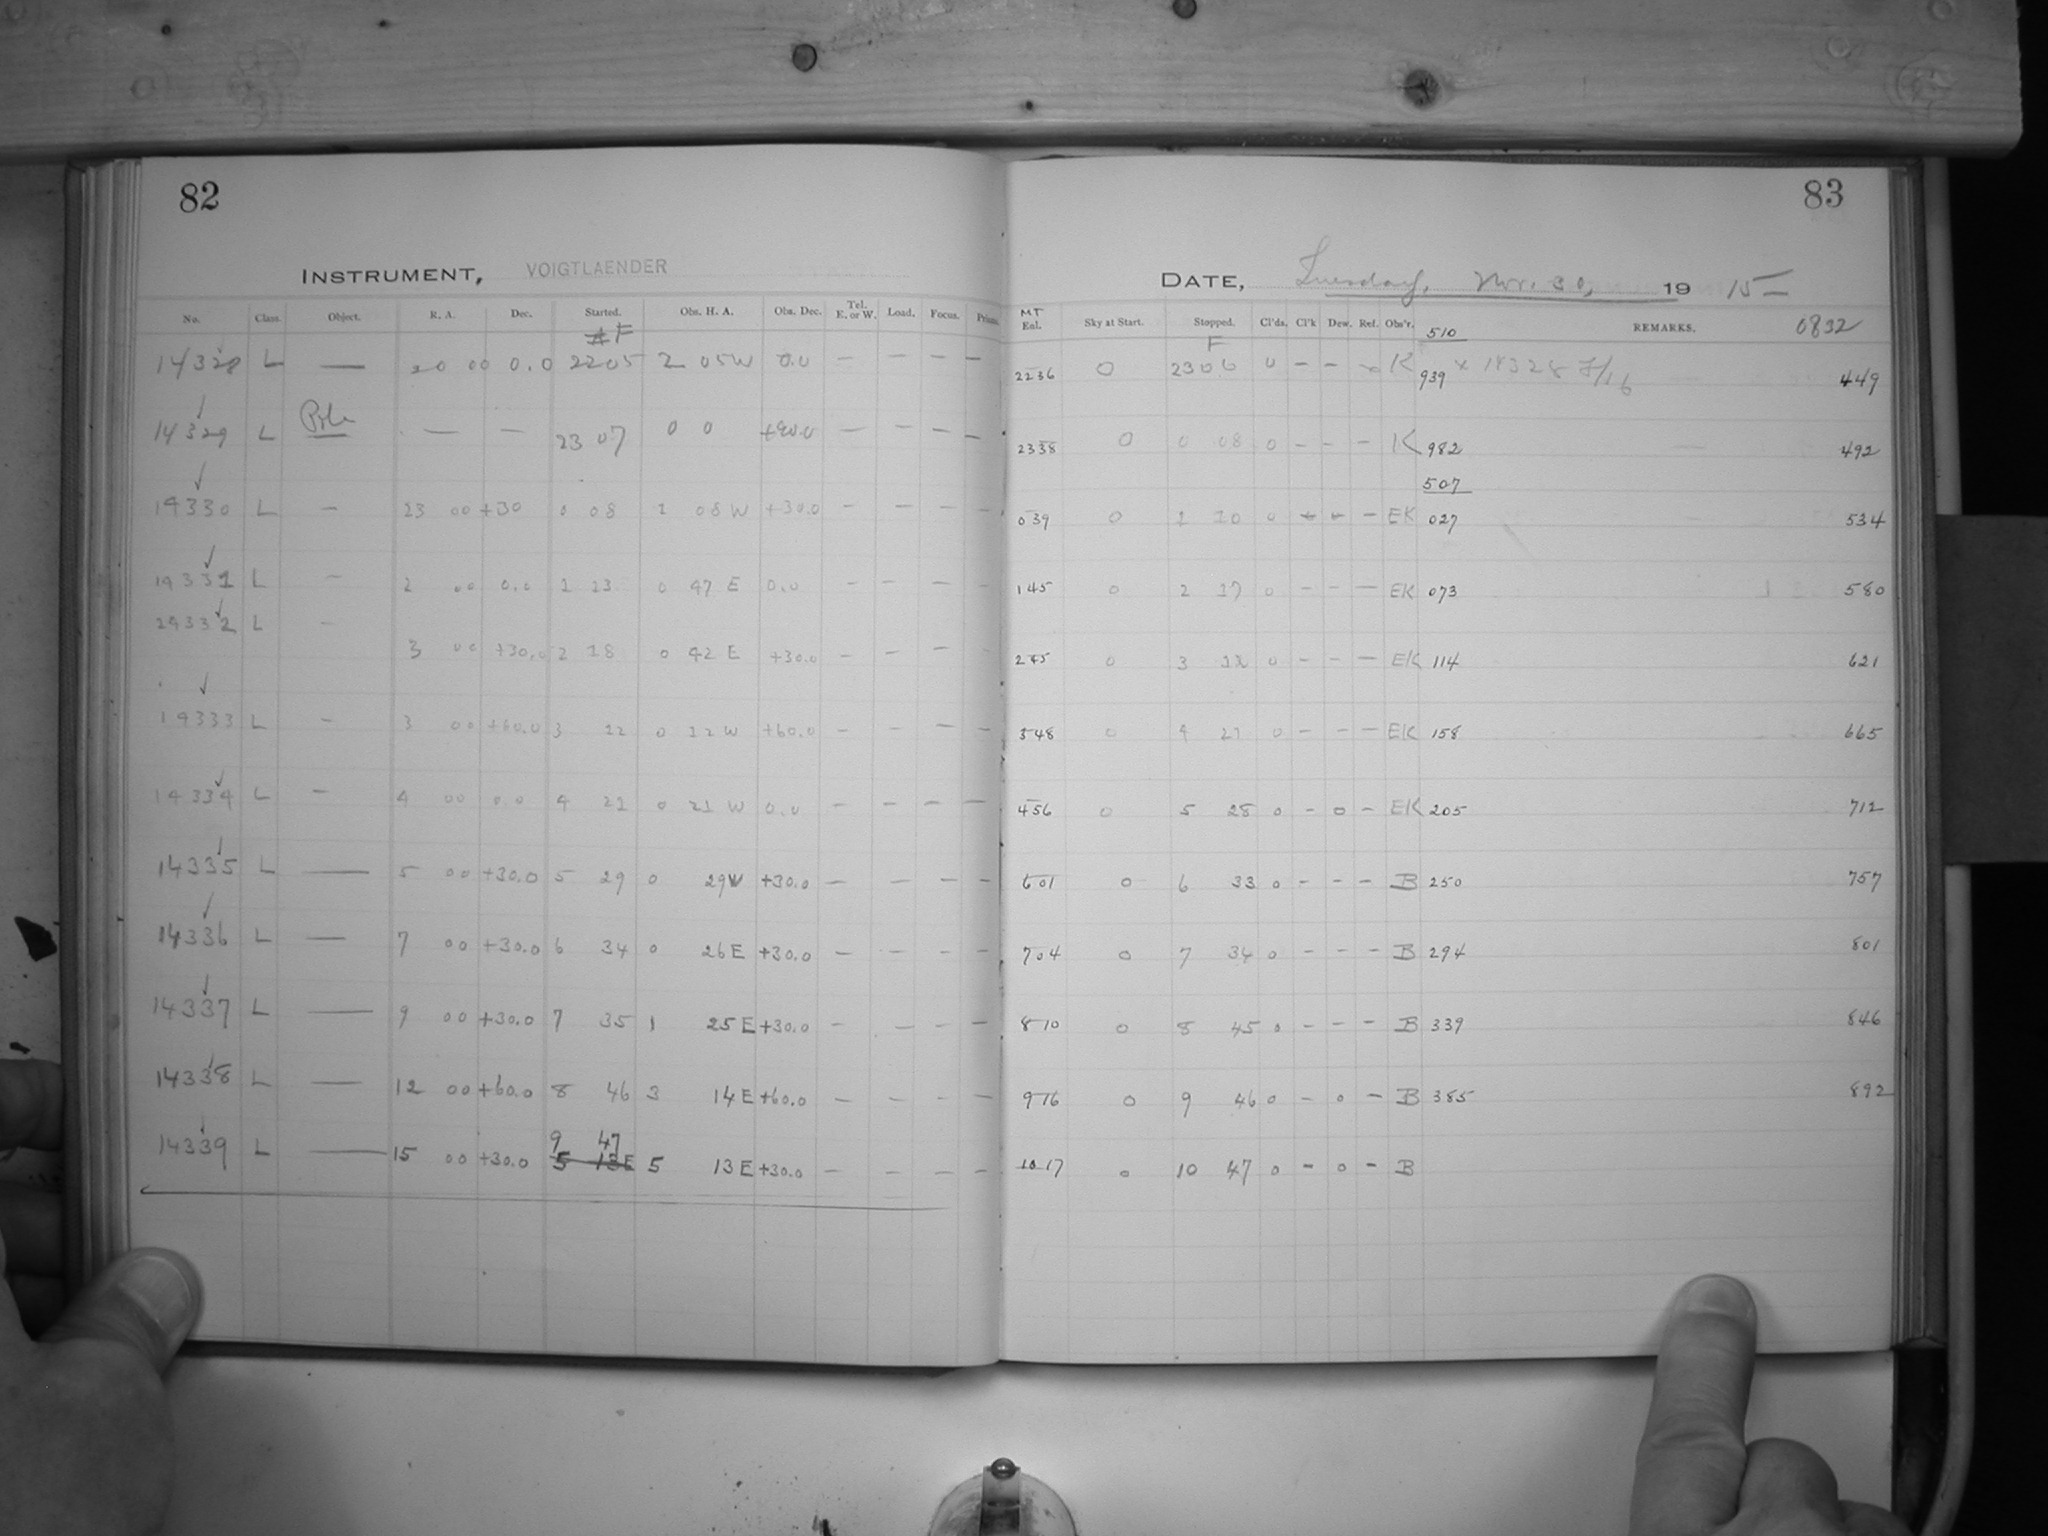 82
INSTRUMENT, VOIGTLAENDER
No. Class. Object. R. A. Dec. Started. Obs. H. A. Obs. Dec. Tel. E. or W. Load. Focus. Prism.
F
14328 L — 20 00 0.0 22 05 2 05 W 0.0 — — — —
14329 L Pole — — 23 07 0 0 +90.0 — — — —
14330 L — 23 00 +30 0 08 1 08 W +30.0 — — — —
14331 L — 2 00 0.0 1 13 0 47 E 0.0 — — — —
14332 L —
3 00 +30.0 2 18 0 42 E +30.0 — — — —
14333 L — 3 00 +60.0 3 12 0 12 W +60.0 — — — —
14334 L — 4 00 0.0 4 21 0 21 W 0.0 — — — —
14335 L — 5 00 +30.0 5 29 0 29 W +30.0 — — — —
14336 L — 7 00 +30.0 6 34 0 26 E +30.0 — — — —
14337 L — 9 00 +30.0 7 35 1 25 E +30.0 — — — —
14338 L — 12 00 +60.0 8 46 3 14 E +60.0 — — — —
9 47
14339 L — 15 00 +30.0 5 13 E 5 13 E +30.0 — — — —
83
DATE, Tuesday, Nov. 30, 1915
MT
Sky at Start. Stopped. Cl'ds. Cl'k Dew. Ref. Obs'r. 510 REMARKS. 0832
F
2236 0 23 06 0 - - K 939 x 14328 F/16 449
2338 0 0 08 0 - - - K 982 492
507
039 0 1 10 0 - EK 027 534
145 0 2 17 0 - - - EK 073 580
245 0 3 0 - - - EK 114 621
348 0 4 21 0 - - - EK 158 665
456 0 5 28 0 - 0 - EK 205 712
601 0 6 33 0 - - - B 250 757
704 0 7 34 0 - - - B 294 801
810 0 8 45 0 - - - B 339 846
916 0 9 46 0 - 0 - B 385 892
1017 0 10 47 0 - 0 - B